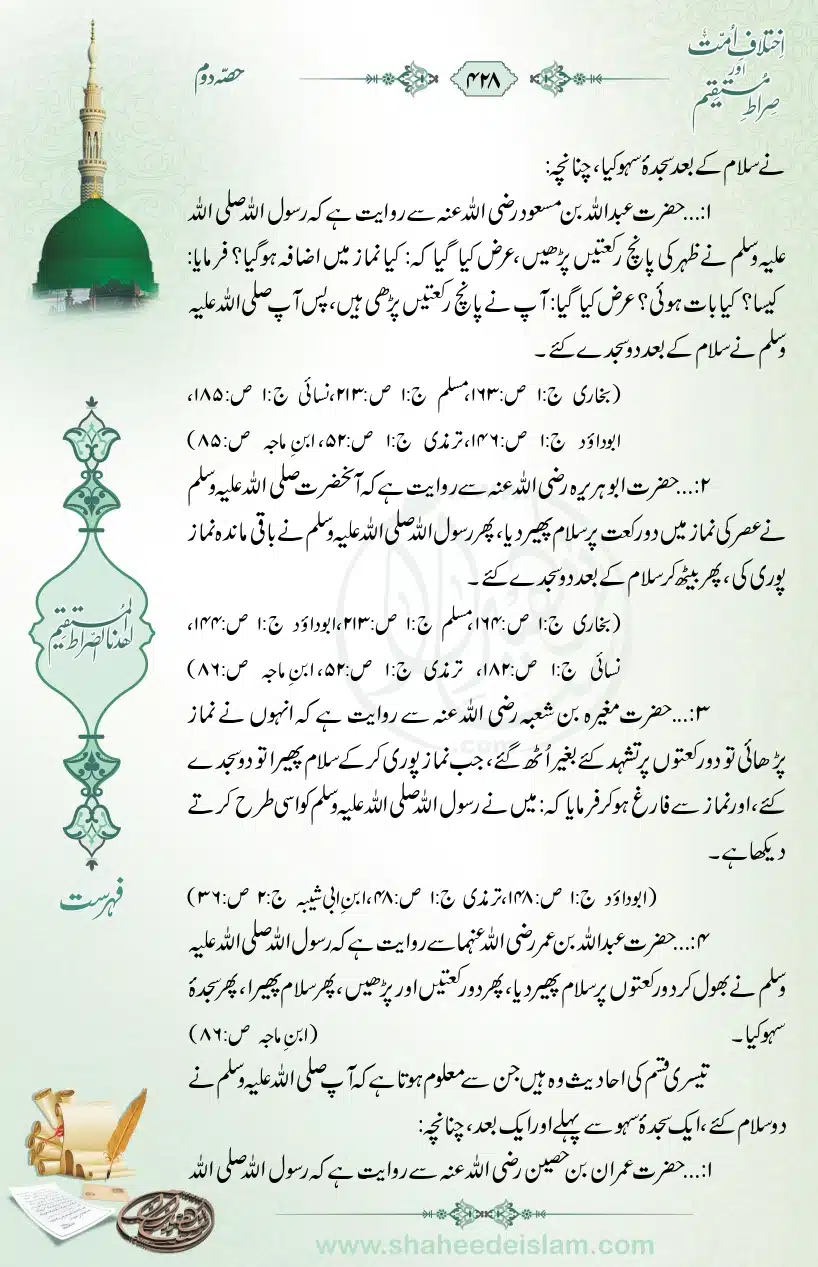 اِختلافِ اُمّت
اور
صِراطِ مُستقیم
۴۲۸
حصّہ دوم
نے سلام کے بعد سجدۂ سہو کیا، چنانچہ:
۱:…حضرت عبداللہ بن مسعود رضی اللہ عنہ سے روایت ہے کہ رسول اللہ صلی اللہ
علیہ وسلم نے ظہر کی پانچ رکعتیں پڑھیں، عرض کیا گیا کہ: کیا نماز میں اضافہ ہوگیا؟ فرمایا:
کیسا؟ کیا بات ہوئی؟ عرض کیا گیا: آپ نے پانچ رکعتیں پڑھی ہیں، پس آپ صلی اللہ علیہ
وسلم نے سلام کے بعد دو سجدے کئے۔
(بخاری ج:۱ ص:۱۶۳، مسلم ج:۱ ص:۲۱۳، نسائی ج:۱ ص:۱۸۵،
ابوداؤد ج:۱ ص:۱۴۶، ترمذی ج:۱ ص:۵۲، ابنِ ماجہ ص:۸۵)
۲:…حضرت ابوہریرہ رضی اللہ عنہ سے روایت ہے کہ آنحضرت صلی اللہ علیہ وسلم
نے عصر کی نماز میں دو رکعت پر سلام پھیر دیا، پھر رسول اللہ صلی اللہ علیہ وسلم نے باقی ماندہ نماز
پوری کی، پھر بیٹھ کر سلام کے بعد دو سجدے کئے۔
(بخاری ج:۱ ص:۱۶۴، مسلم ج:۱ ص:۲۱۳، ابوداؤد ج:۱ ص:۱۴۴،
نسائی ج:۱ ص:۱۸۲، ترمذی ج:۱ ص:۵۲، ابنِ ماجہ ص:۸۶)
۳:…حضرت مغیرہ بن شعبہ رضی اللہ عنہ سے روایت ہے کہ انہوں نے نماز
پڑھائی تو دو رکعتوں پر تشہد کئے بغیر اُٹھ گئے، جب نماز پوری کرکے سلام پھیرا تو دو سجدے
کئے، اور نماز سے فارغ ہوکر فرمایا کہ: میں نے رسول اللہ صلی اللہ علیہ وسلم کو اسی طرح کرتے
دیکھا ہے۔
(ابوداؤد ج:۱ ص:۱۴۸، ترمذی ج:۱ ص:۴۸، ابنِ ابی شیبہ ج:۲ ص:۳۶)
۴:…حضرت عبداللہ بن عمر رضی اللہ عنہما سے روایت ہے کہ رسول اللہ صلی اللہ علیہ
وسلم نے بھول کر دو رکعتوں پر سلام پھیر دیا، پھر دو رکعتیں اور پڑھیں، پھر سلام پھیرا، پھر سجدۂ
سہو کیا۔ (ابنِ ماجہ ص:۸۶)
تیسری قسم کی احادیث وہ ہیں جن سے معلوم ہوتا ہے کہ آپ صلی اللہ علیہ وسلم نے
دو سلام کئے، ایک سجدۂ سہو سے پہلے اور ایک بعد، چنانچہ:
۱:…حضرت عمران بن حصین رضی اللہ عنہ سے روایت ہے کہ رسول اللہ صلی اللہ
اهدنا الصراط المستقیم
فہرست
www.shaheedeislam.com